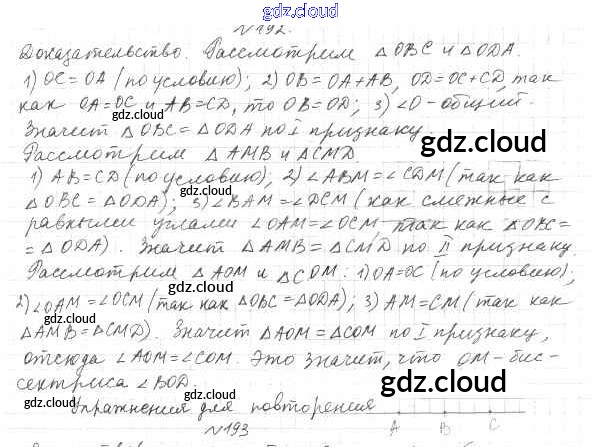 gdz.cloud
N192.
Доказательство. Рассмотрим △OBC и △ODA.
1) OC=OA (по условию); 2) OB=OA+AB, OD=OC+CD, так
как OA=OC и AB=CD, то OB=OD; 3) ∠O-общий.
Значит △OBC=△ODA по I признаку.
gdz.cloud
Рассмотрим △AMB и △CMD.
1) AB=CD (по условию); 2) ∠ABM=∠CDM (так как
△OBC=△ODA); 3) ∠BAM=∠DCM (как смежные с
gdz.cloud
равными углами ∠OAM=∠OCM, так как △OBC=
=△ODA). Значит △AMB=△CMD по II признаку.
gdz.cloud
Рассмотрим △AOM и △COM. 1) OA=OC (по условию);
2) ∠OAM=∠OCM (так как △OBC=△ODA); 3) AM=CM (так как
gdz.cloud
△AMB=△CMD). Значит △AOM=△COM по I признаку,
отсюда ∠AOM=∠COM. Это значит, что OM-бис-
сектриса ∠BOD.
gdz.cloud
Упражнения для повторения
N193
A B C
gdz.cloud